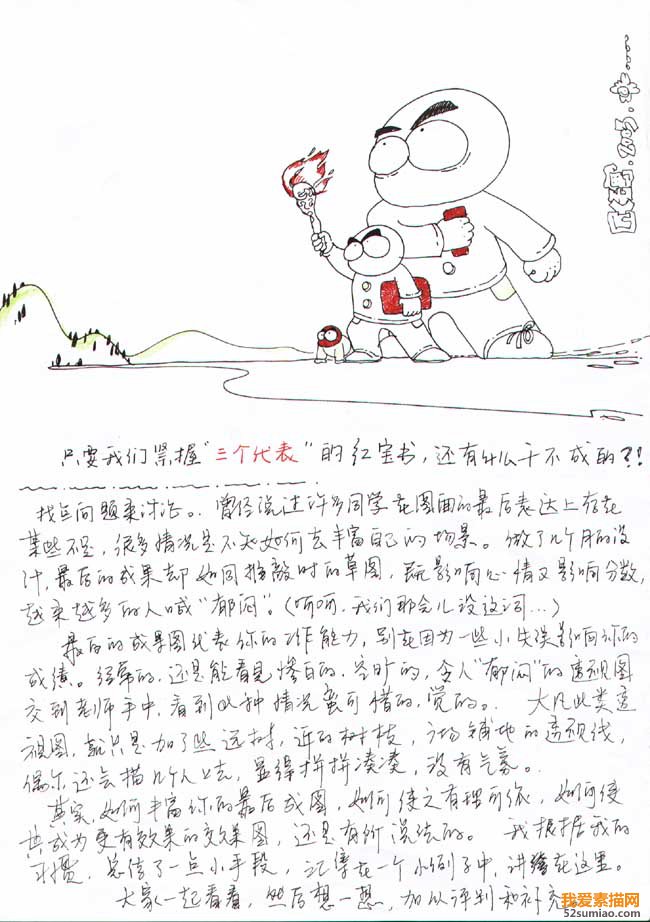 只要我们紧握"三个代表"的红宝书，还有什么干不成的？！
找些问题来讨论。曾经说过许多同学在图面的最后表达上存在
某些不足，很多情况是不知如何去丰富自己的场景。做了几个月的设
计，最后的成果却如同推敲时的草图，既影响心情又影响分数，
越来越多的人喊"郁闷"。（呵呵，我们那会儿没这词…）
最后的成果图代表你的工作能力，别在因为一些小失误影响你的
成绩。经常的，还是能看见惨白的，空旷的，令人"郁闷"的透视图
交到老师手中，看到此种情况蛮可惜的，觉的。大凡此类透
视图，就只是加了些远树，近的树枝，广场铺地的透视线，
偶尔还会描几个人上去，显得拼拼凑凑，没有气氛。
其实，如何丰富你的最后成图，如何使之有理可依，如何使
其成为更有效果的交图，还是有所说法的。我根据我的
习惯，总结了一点小手段，汇集在一个小例子中，讲绘在这里。
大家一起看看，然后想一想，加以评判和补充
我爱素描网
52sumiao.com